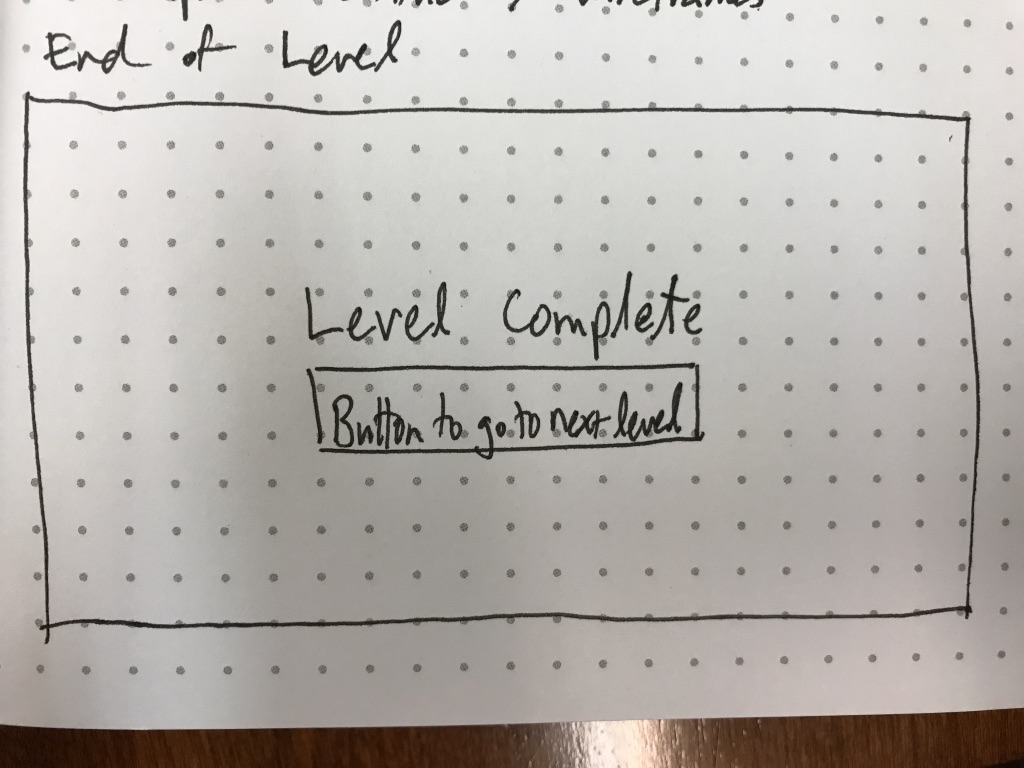 wireframes
End of Level
Level Complete
Button to go to next level